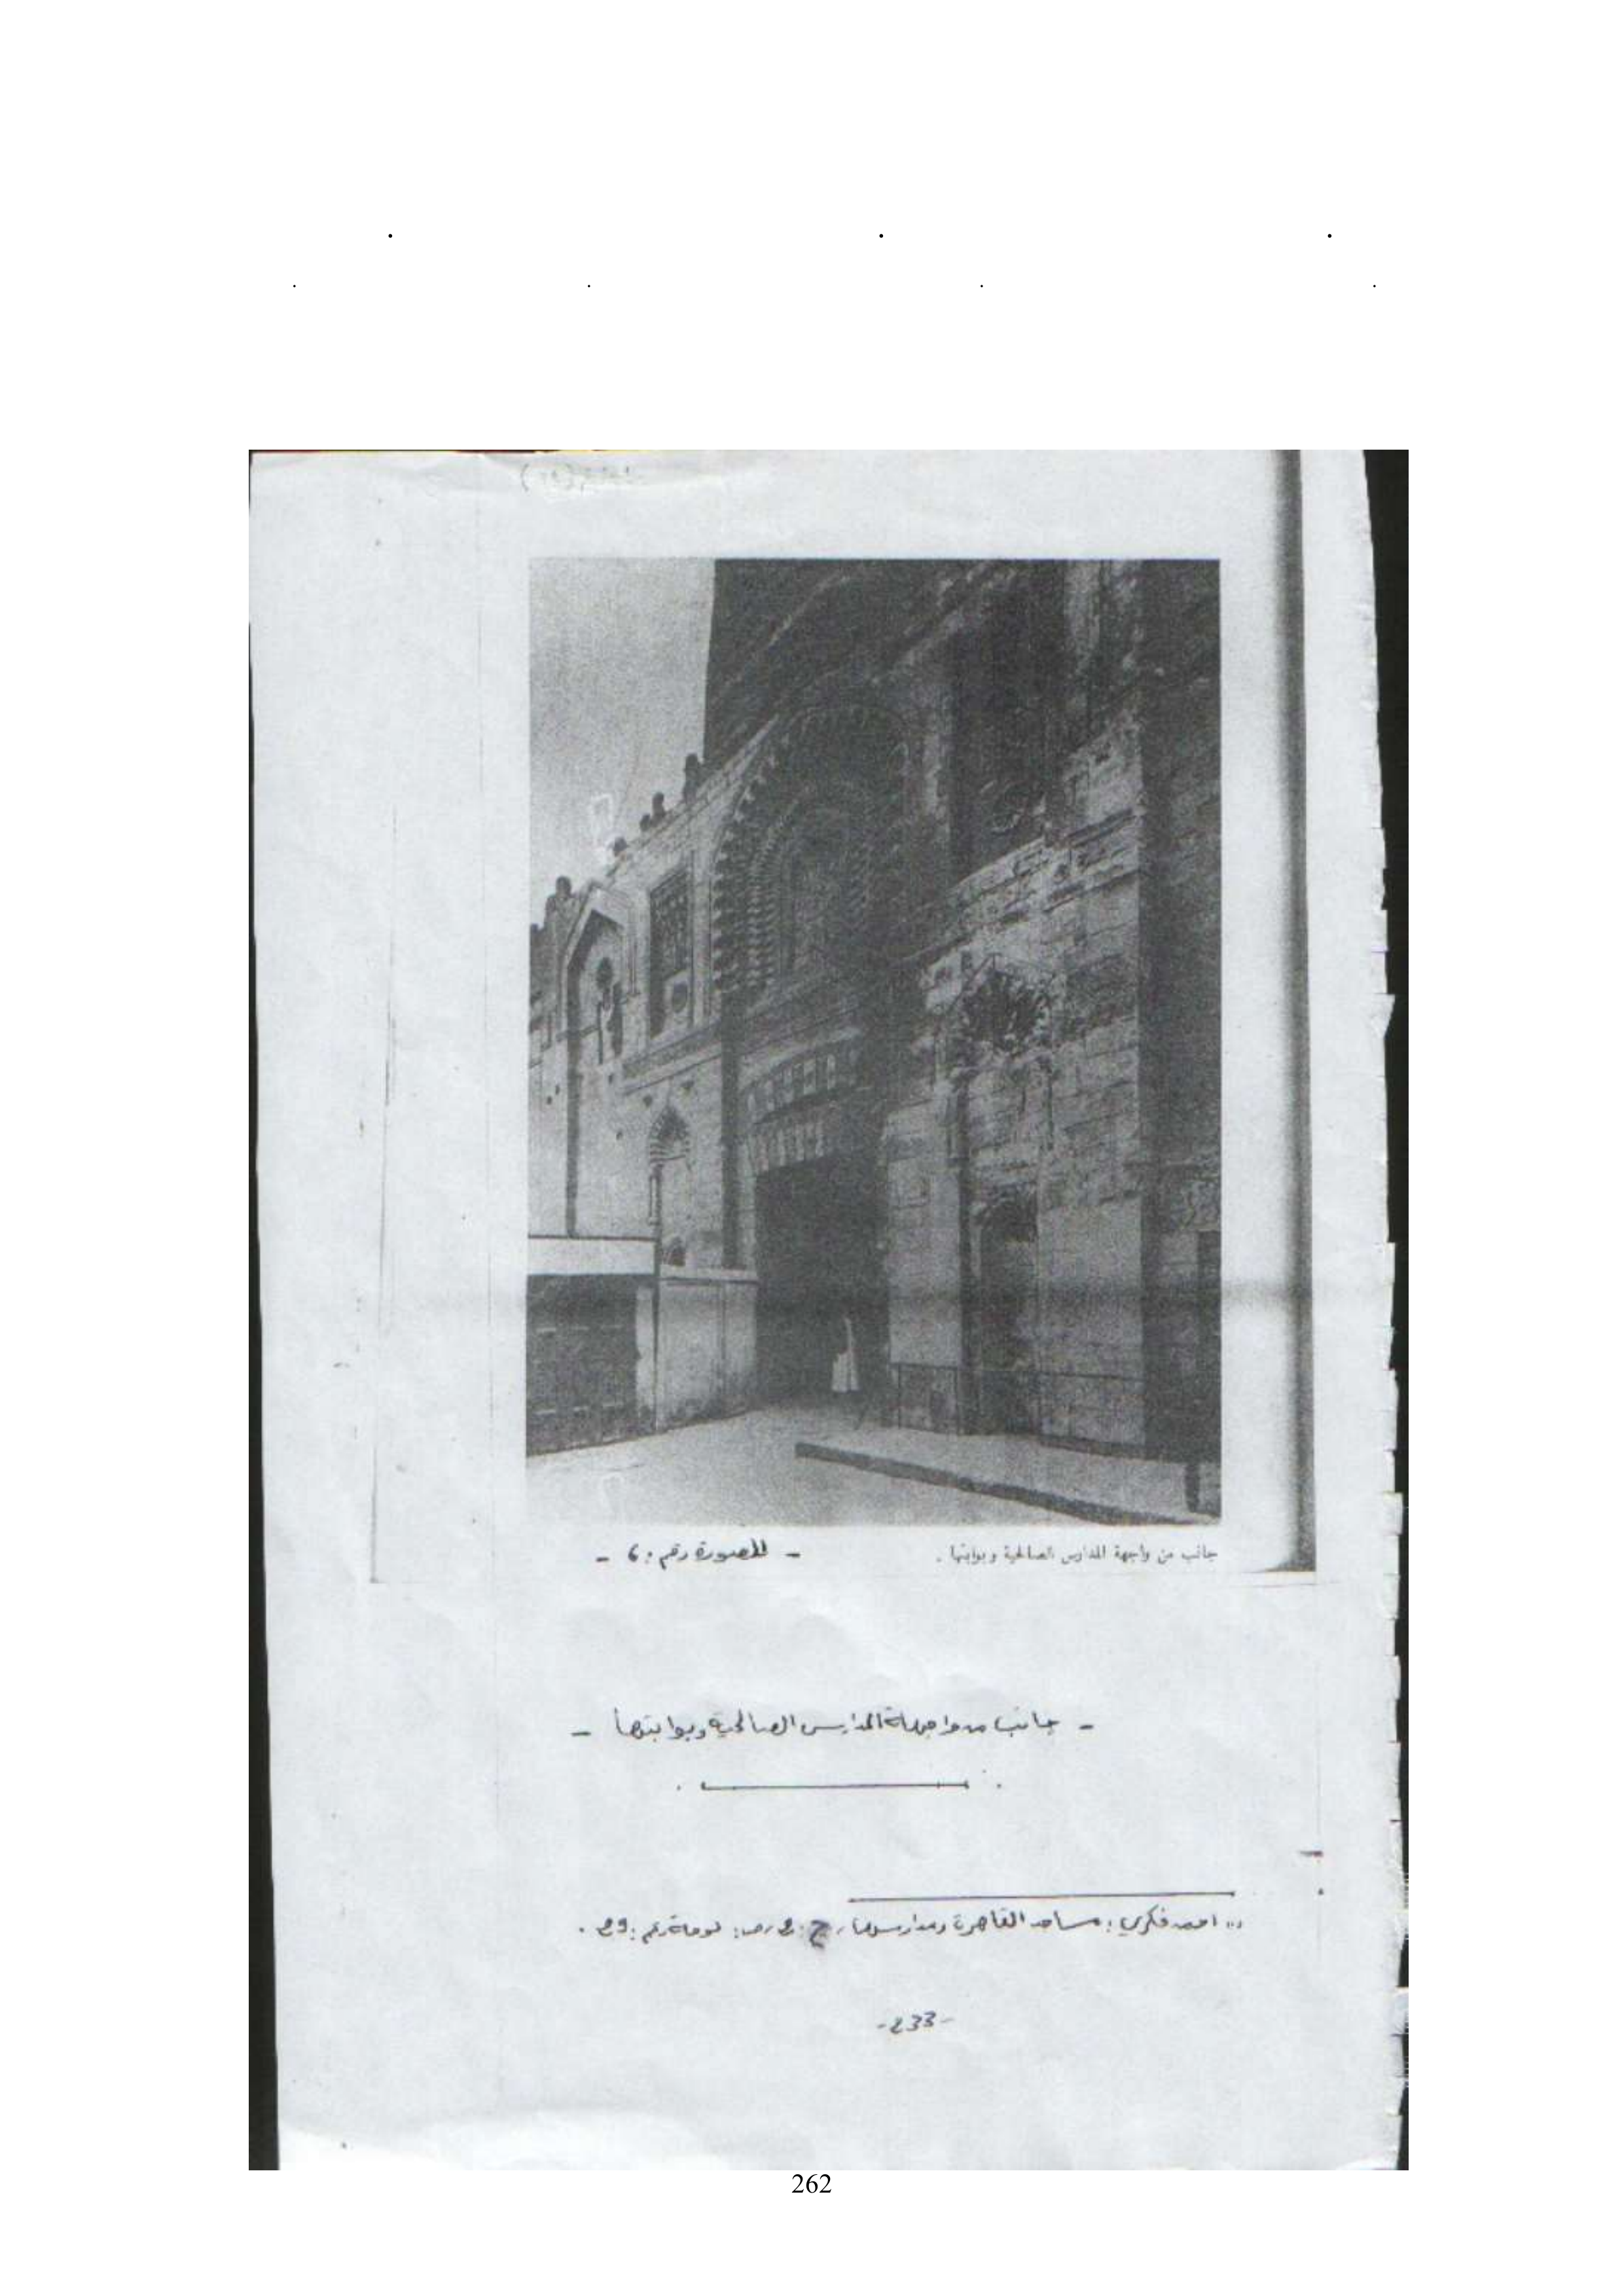 جانب من واجهة المدارس الصالحية وبوابتها .
- الصورة رقم : 6 -
- جانب من واجهة المدارس الصالحية وبوابتها -
احمد فكري : مساجد القاهرة ومدارسها ، ج : 2 ، ص : لوحة رقم : 29 .
-233-
262